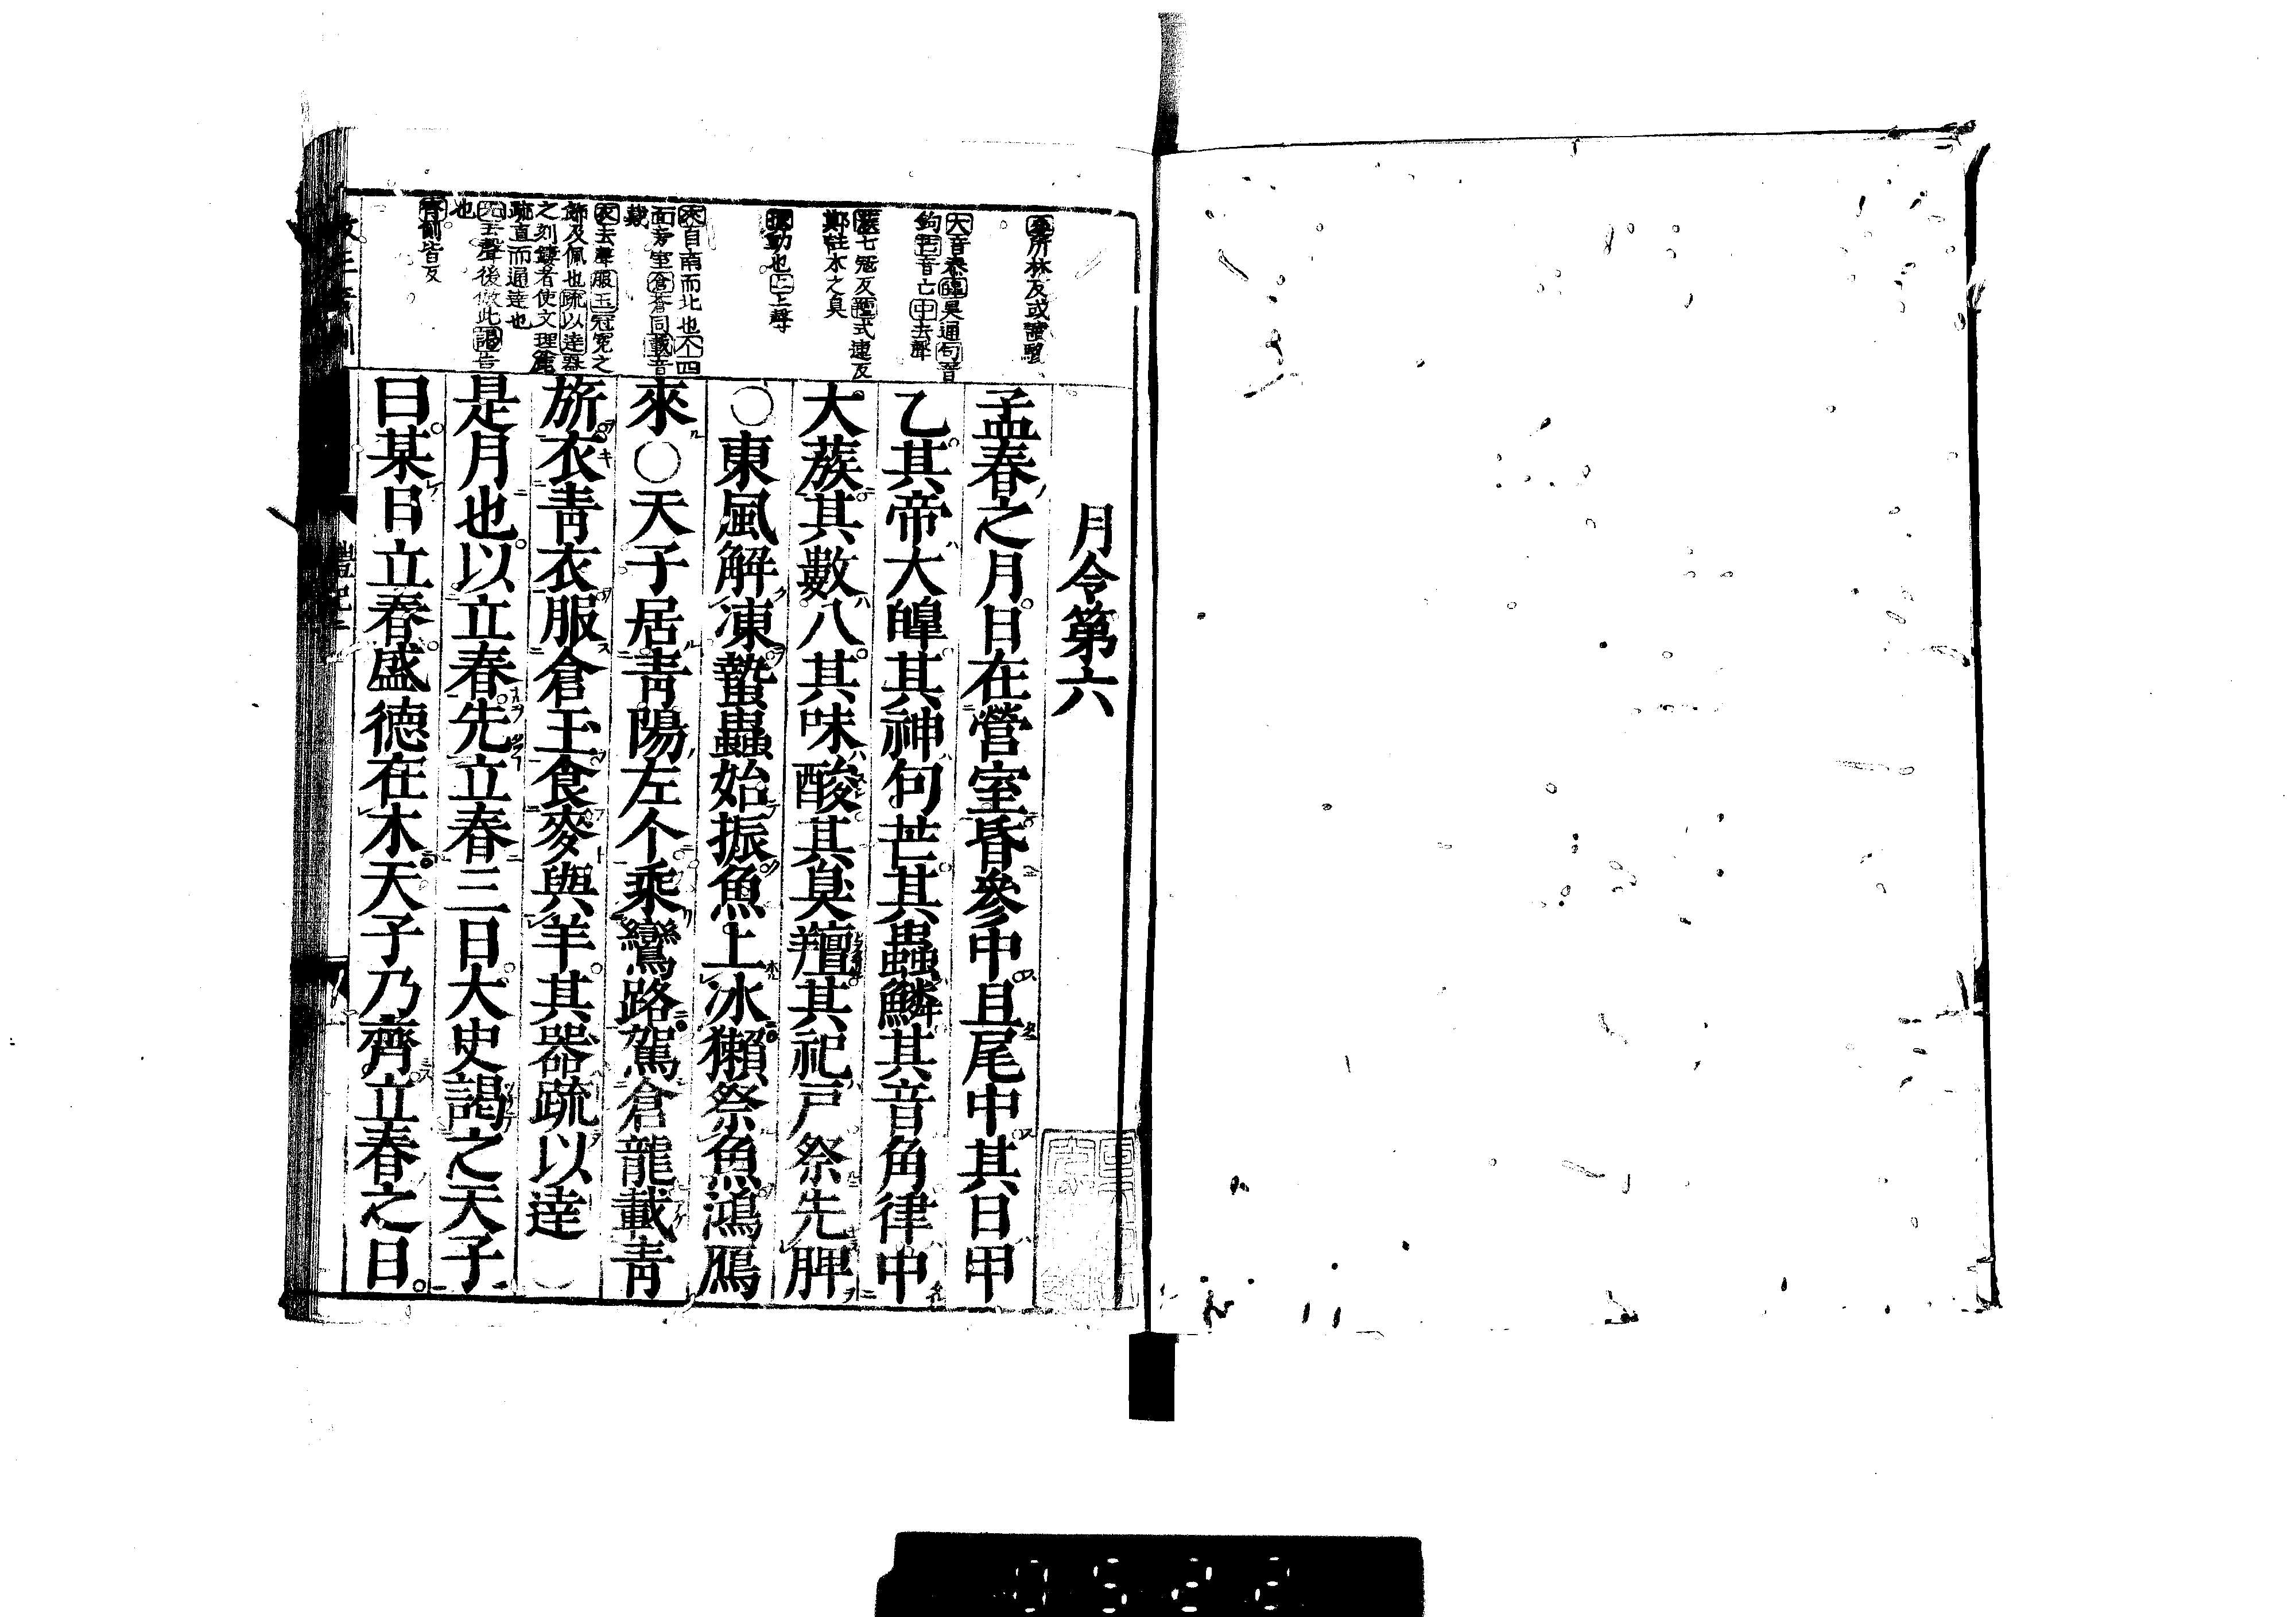 月令第六
孟春之月日在營室昏參中旦尾中其日甲
乙其帝大皥其神句芒其蟲鱗其音角律中
大蔟其數八其味酸其臭羶其祀戸祭先脾
○東風解凍蟄蟲始振魚上冰獺祭魚鴻鴈
來○天子居青陽左个乘鸞路駕倉龍載青
旂衣青衣服倉玉食麥與羊其器疏以達
是月也以立春先立春三日大史謁之天子
曰某日立春盛德在木天子乃齊立春之日
參所林反或讀驂
大音泰皥昊通句音
鉤芒音亡中去聲
蔟七冦反羶式連反
鄭註木之臭
振動也上上聲
來自南而北也个四
面旁室倉蒼同載音
戴
衣去聲服玉冠冕之
飾及佩也疏以達器
之刻鏤者使文理麄
疏直而通達也
先去聲後倣此謁告
也
齊側皆反
0522